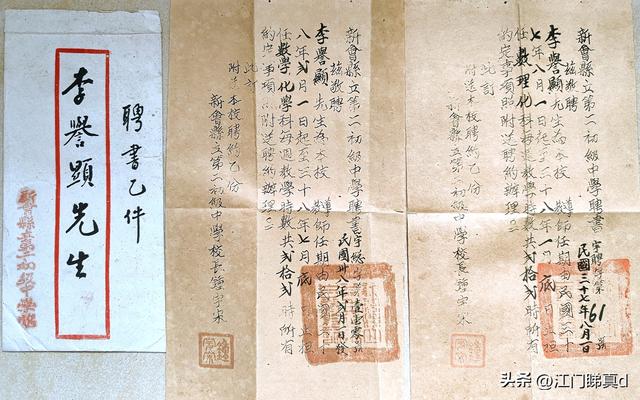 聘書乙件
李譽顯先生
新會縣立第二初級中學
新會縣立第二初級中學聘書
茲敬聘
李譽顯先生為本校導師任期由民國三十
八年弍月一日起至三十八年七月底日止担
任數學化學科每週教學時數共弍拾弍時所有
約定事項照附送聘約辦理
此訂
附送本校聘約乙份
新會縣立第二初級中學校長鍾宇宋
民國卅八年弍月一日發
新會縣立第二初級中學聘書
字聘字第61號
茲敬聘
李譽顯先生為本校導師任期由民國三十
七年八月一日起至三十八年一月底日止担
任數理化科每週教學時數共弍拾弍時所有
約定事項照附送聘約辦理
此訂
附送本校聘約乙份
新會縣立第二初級中學校長鍾宇宋
民國三十七年八月一日
头条 @江门睇真d